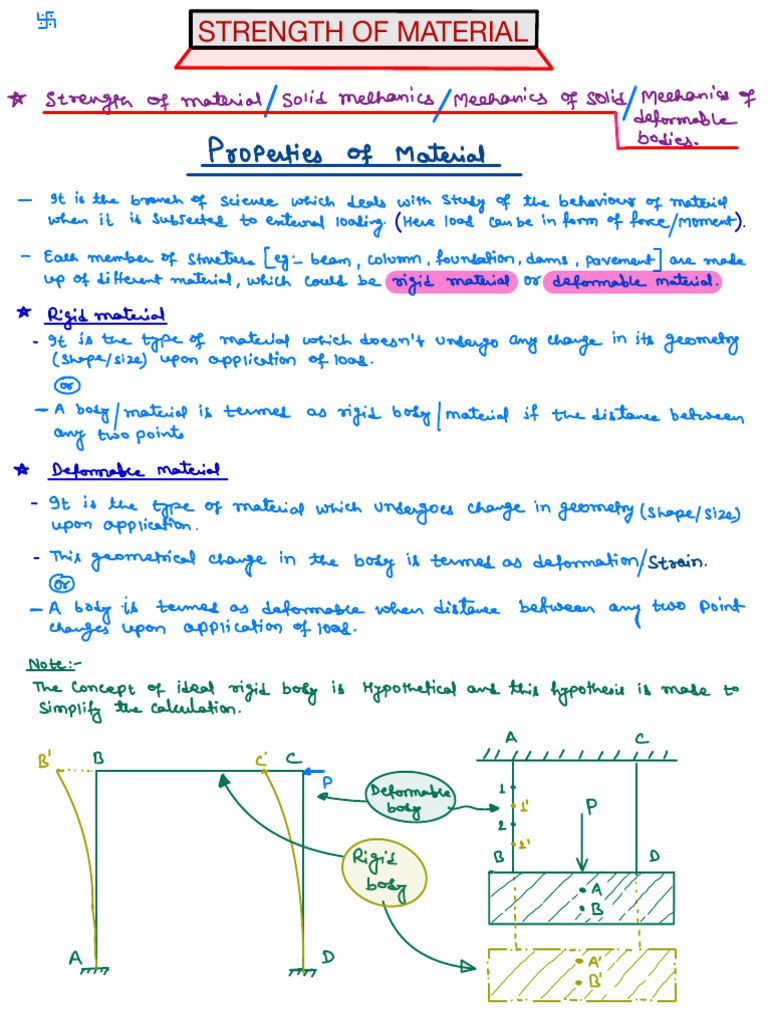 STRENGTH OF MATERIAL
★ Strength of material/Solid mechanics/Mechanics of Solid/Mechanics of
deformable
bodies.
Properties of Material
- It is the branch of science which deals with study of the behaviour of material
when it is subjected to external loading. (Here load can be in form of force/Moment).
- Each member of structure [eg:- beam, column, foundation, dams, pavement] are made
up of different material, which could be rigid material or deformable material.
★ Rigid material
- It is the type of material which doesn't undergo any change in its geometry
(shape/size) upon application of load.
or
- A body/material is termed as rigid body/material if the distance between
any two points
★ Deformable material
- It is the type of material which undergoes change in geometry (shape/size)
upon application.
- This geometrical change in the body is termed as deformation/Strain.
or
- A body is termed as deformable when distance between any two point
changes upon application of load.
Note:-
The concept of ideal rigid body is Hypothetical and this hypothesis is made to
simplify the calculation.
A C
B' B C' C
P
Deformable
body
1
1'
2
2'
P
B D
Rigid
body
A
B
A D
A'
B'